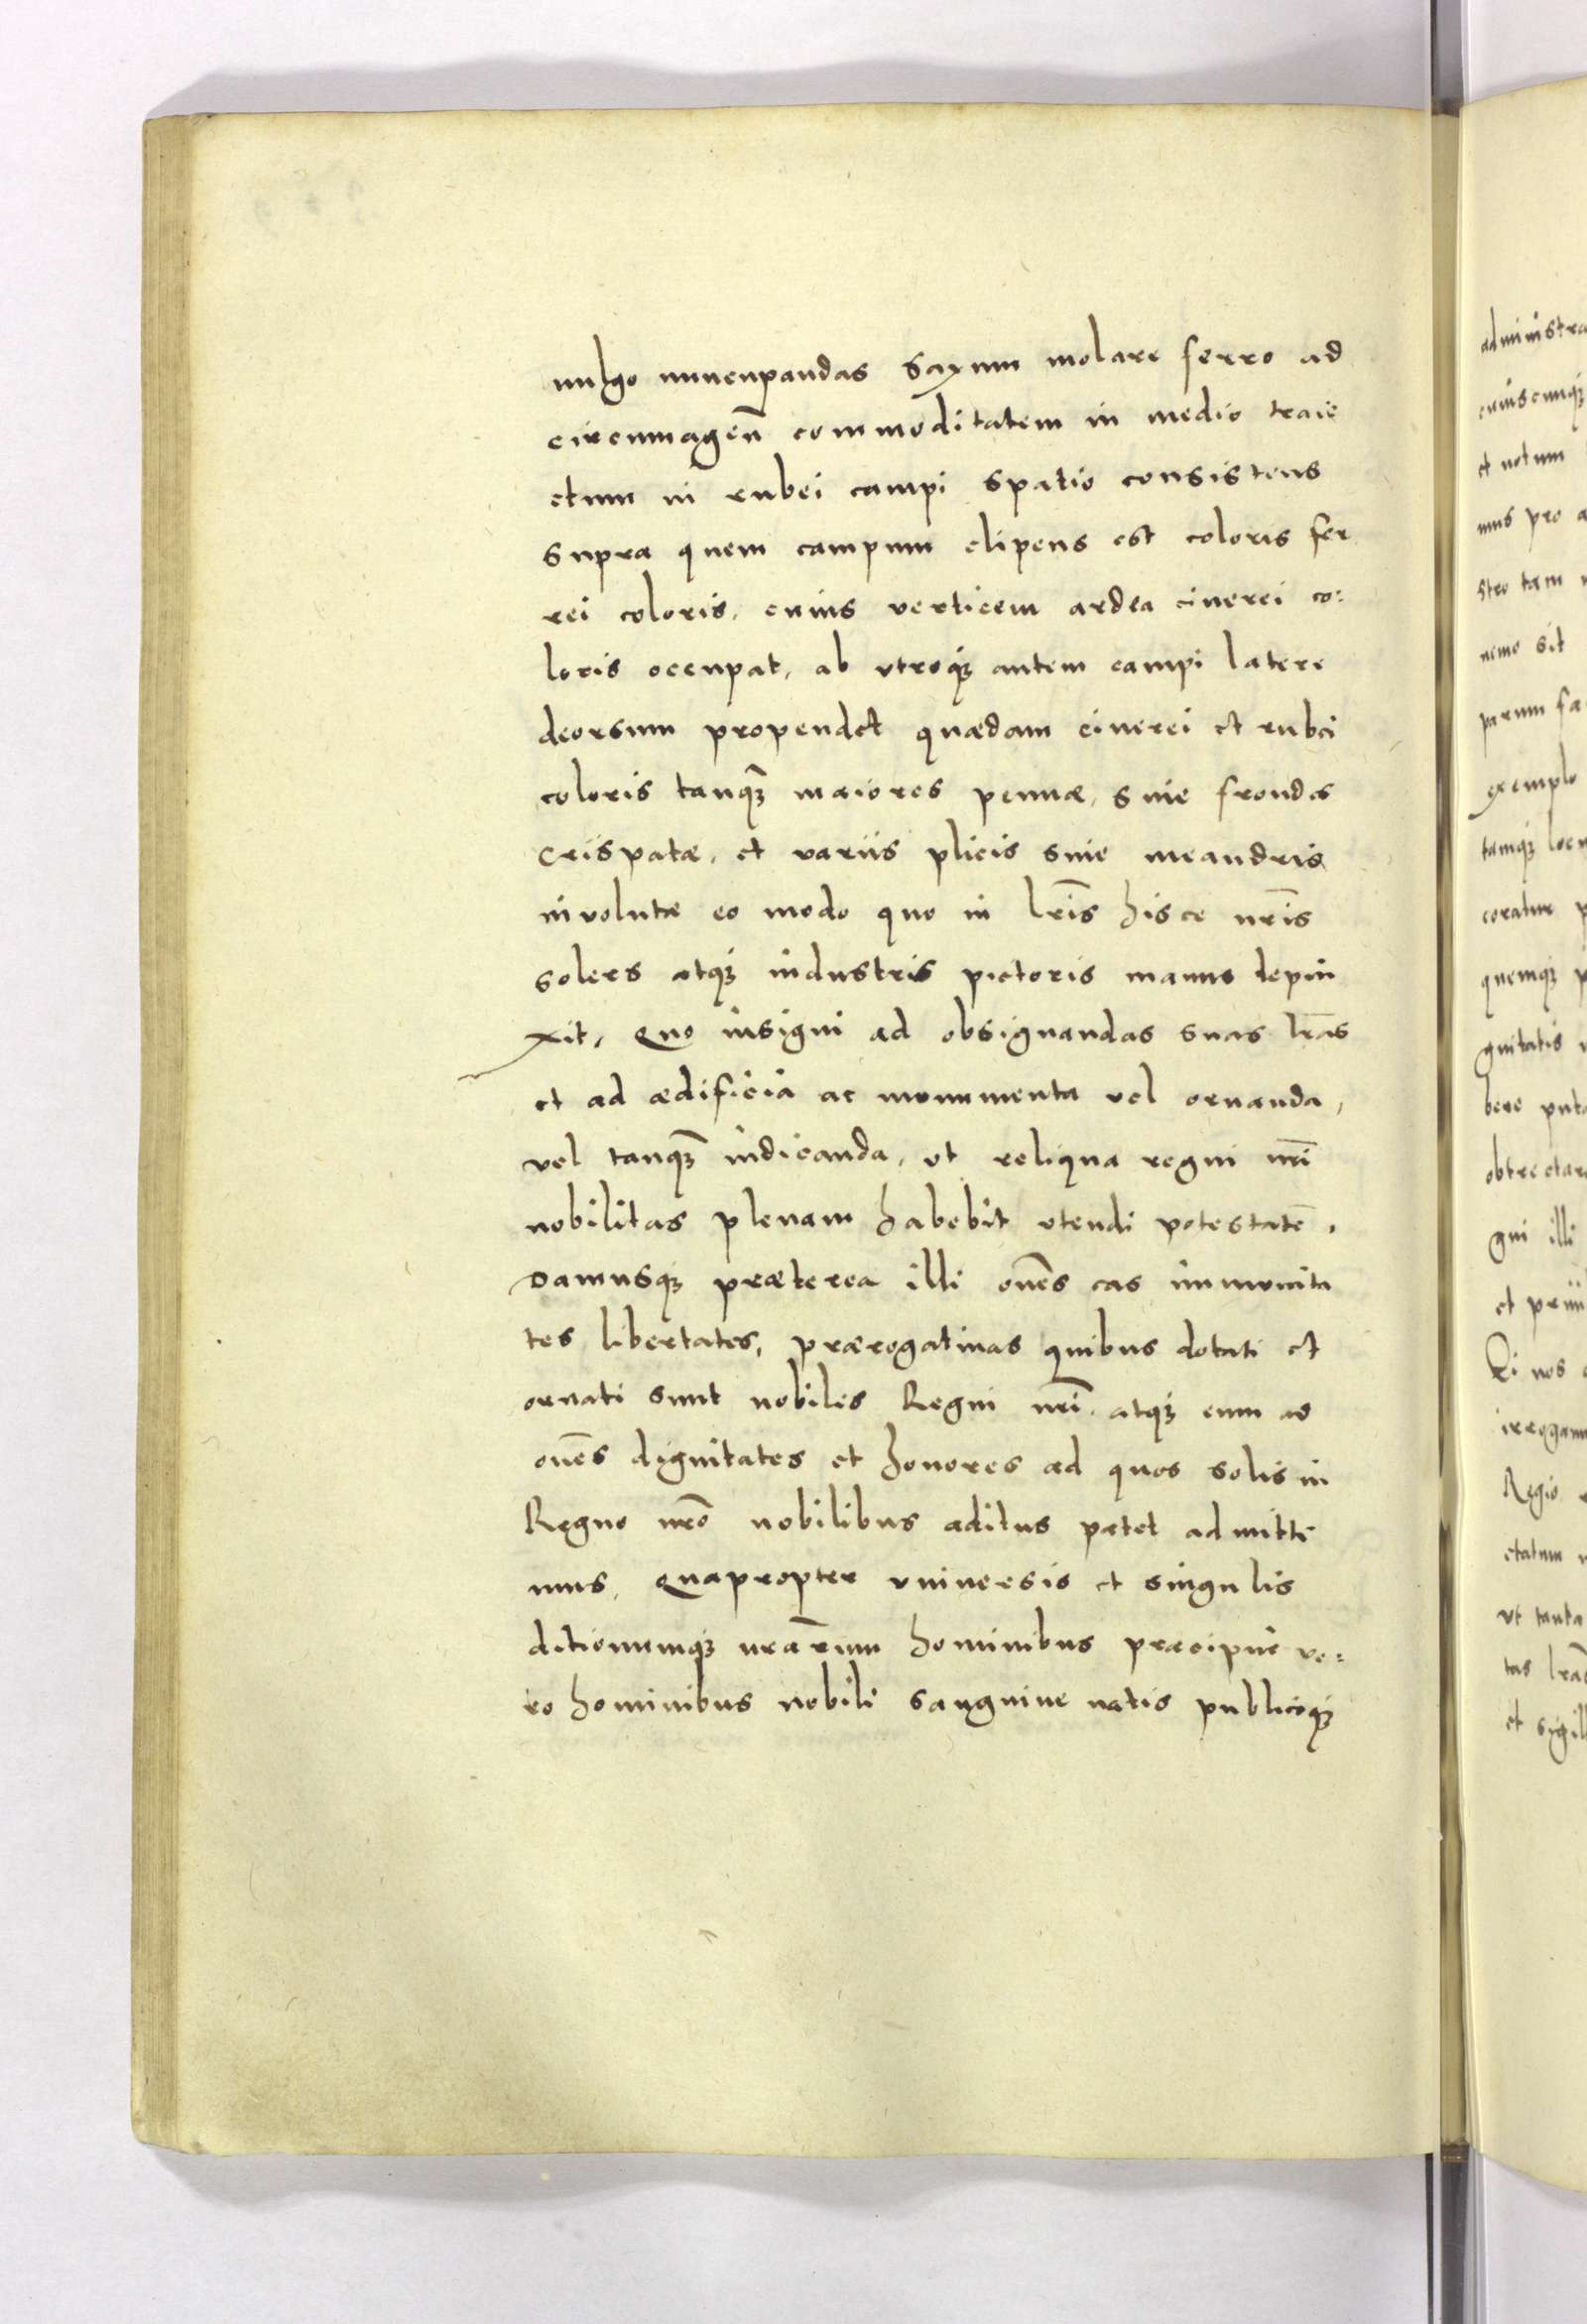 uulgo nuncupandas saxum molare ferro ad
circumagen̄ commoditatem in medio traie
ctum in rubei campi spatio consistens
supra quem campum clipeus est coloris fer
rei coloris, cuius verticem ardea cinerei co:
loris occupat, ab vtroq̨ȝ autem campi latere
deorsum propendet quædam cinerei et rubei
coloris tanqȝ̄ maiores pennæ, siue frondes
crispatæ, et variis plicis siue meandris
involutæ eo modo quo in lr̄is hisce nr̄is
solers atqȝ industris pictoris manus depin
xit, Quo insigni ad obsignandas suas lr̄as
et ad ædificia ac monumenta vel ornanda,
vel tanqȝ̄ indicanda, ut reliqua regni nr̄i
nobilitas plenam habebit utendi potestatē,
Damusqȝ præterea illi om̄es eas immunita
tes libertates, prærogatiuas quibus dotati et
ornati sunt nobiles Regni nr̄i, atqȝ eum ad
om̄es dignitates et honores ad quos solis in
Regno nr̄o nobilibus aditus patet admitti
mus, Quapropter vniuersis et singulis
ditionumqȝ nr̄arum hominibus præcipue ve:
ro hominibus nobili sanguine natis publicoqȝ
administra
cuiuscunqȝ
et notum
mus pro a
stro tam
nemo sit
parum fa
exemplo
tamqȝ locu
coratur p
quemqȝ
gnitatis
bere puta
obtrectare
gni illi
et priui
Ei nos
irrogam
Regio
ctatum
ut tanta
tas lr̄as
et sigill